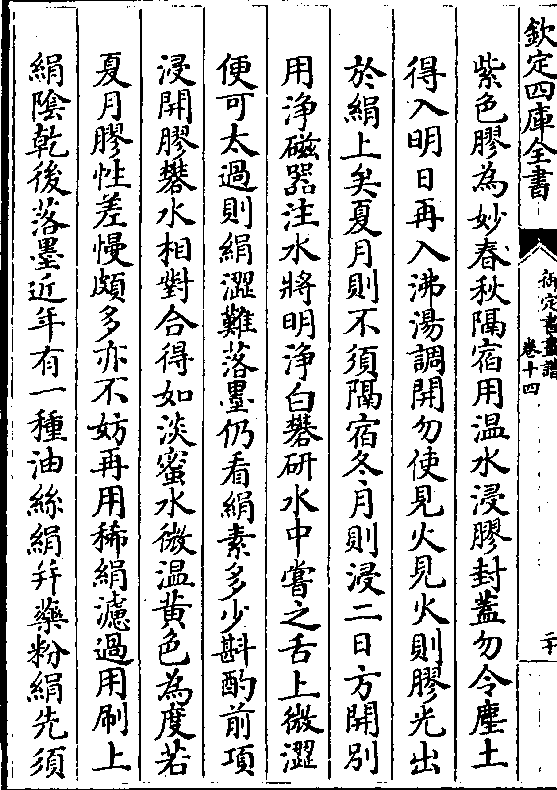 欽定四庫全書
御定書畫譜
卷十四
二十
紫色膠為妙春秋隔宿用温水浸膠封蓋勿令塵土
得入明日再入沸湯調開勿使見火見火則膠光出
於絹上矣夏月則不須隔宿冬月則浸二日方開別
用浄磁器注水將明浄白礬研水中嘗之舌上微澀
便可太過則絹澀難落墨仍看絹素多少斟酌前項
浸開膠礬水相對合得如淡蜜水微温黃色為度若
夏月膠性差慢頗多亦不妨再用稀絹濾過用刷上
絹陰乾後落墨近年有一種油絲絹并藥粉絹先須